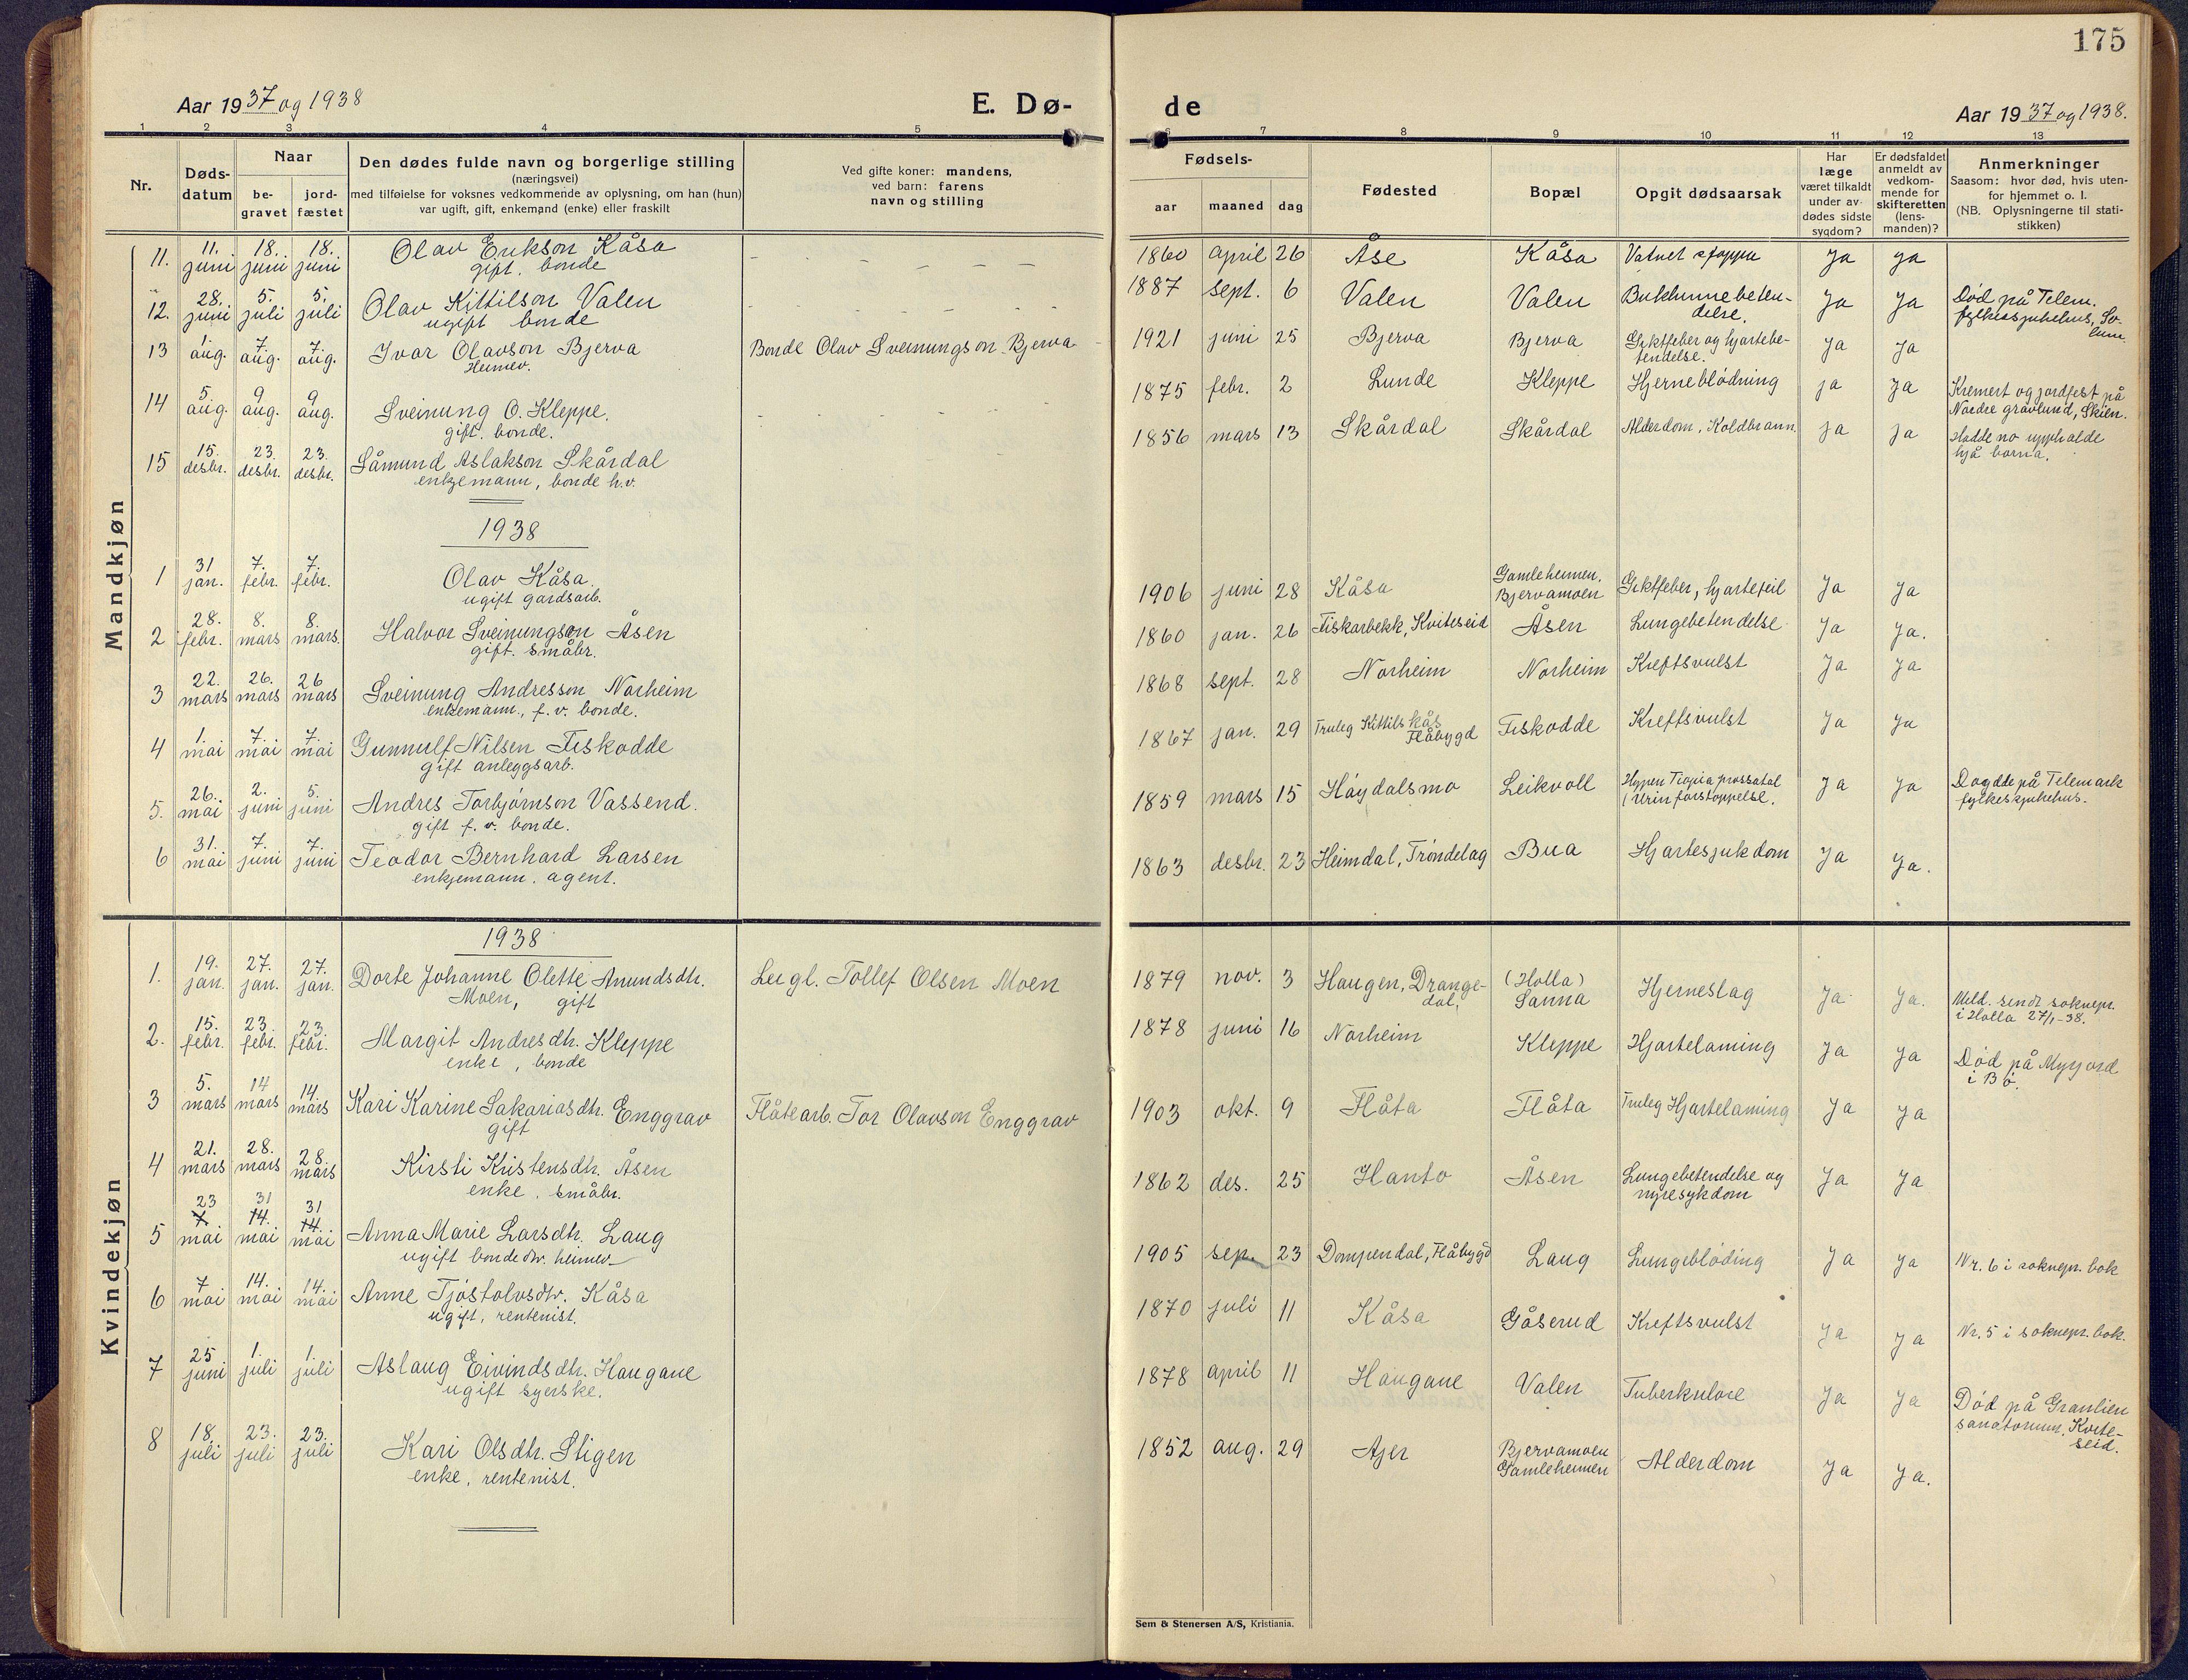 175
Aar 1937 og 1938
E. Dø-
de
Aar 1937 og 1938.
1 2 3 4 5 6 7 8 9 10 11 12 13
Nr.
Døds-
datum
Naar
be-
gravet
jord-
fæstet
Den dødes fulde navn og borgerlige stilling
(næringsvei)
med tilføielse for voksnes vedkommende av oplysning, om han (hun)
var ugift, gift, enkemand (enke) eller fraskilt
Ved gifte koner: mandens,
ved barn: farens
navn og stilling
Fødsels-
aar maaned dag
Fødested
Bopæl
Opgit dødsaarsak
Har
læge
været tilkaldt
under av-
dødes sidste
sygdom?
Er dødsfaldet
anmeldt av
vedkom-
mende for
skifteretten
(lens-
manden)?
Anmerkninger
Saasom: hvor død, hvis uten-
for hjemmet o. l.
(NB. Oplysningerne til stati-
stikken)
Mandkjøn
11. 11. juni 18. juni 18. juni Olav Erikson Kåsa
gift. bonde
1860 april 26 Åse Kåsa Ja Ja
12. 28. juni 5. juli 5. juli Olav Kittilson Valen
ugift bonde
1887 sept. 6 Valen Valen Bukhinnebeten-
delse. Ja Ja Død på Telem.
fylkessjukehus, So-
lum.
13 1. aug. 7. aug. 7. aug. Ivar Olavson Bjerva
Heimev.
Bonde Olav Sveinungson Bjerva
1921 juni 25 Bjerva Bjerva Giktfeber og hjartebe-
tendelse. Ja Ja
14 5. aug. 9 aug. 9 aug. Sveinung O. Kleppe.
gift. bonde.
1875 febr. 2 Lunde Kleppe Hjerneblödning ja Ja Kremert og jordfest på
Nordre gravlund, Skien.
15 15. desbr. 23. desbr. 23. desbr. Såmund Aslakson Skårdal
enkjemann, bonde h.v.
1856 mars 13 Skårdal Skårdal Alderdom, Koldbrann. ja ja Hadde no upphalde
hjå borna.
1938
1 31 jan. 7. febr. 7. febr. Olav Kåsa.
ugift gardsarb.
1906 juni 28 Kåsa Gamleheimen.
Bjervamoen Giktfeber, hjartefeil Ja Ja
2 28. febr. 8. mars 8. mars. Halvor Sveinungson Åsen
gift. småbr.
1860 jan. 26 Fiskarbekk, Kviteseid Åsen Lungebetendelse Ja Ja.
3 22. mars 26. mars 26 mars Sveinung Andresson Norheim
enkemann., f. v. bonde.
1868 sept. 28 Norheim Norheim Kreftsvulst Ja Ja
4 1. mai 7. mai 7. mai Gunnulf Nilsen Fiskodde
gift anleggsarb.
1867 jan. 29 Truleg Kittilskås
Flåbygd Fiskodde Kreftsvulst Ja Ja
5. 26. mai 2. juni 5. juni Andres Torbjørnson Vassend.
gift f. v. bonde.
1859 mars 15 Høydalsmo Leikvoll
(Urinforstoppelse. Ja Ja Døydde på Telemark
fylkessjukehus.
6 31. mai 7. juni 7. juni Teodor Bernhard Larsen
enkjemann. agent.
1863 desbr. 23 Heimdal, Trøndelag Bua Hjartesjukdom Ja Ja.
Kvindekjøn
1938
1. 19. jan. 27. jan. 27. jan. Dorte Johanne Olette Anundsdtr.
Moen, gift
Leigl. Tollef Olsen Moen
1879 nov. 3 Haugen, Drange-
dal. (Holla)
Sanna Hjerneslag Ja Ja. Meld. sendt soknepr.
i Holla 27/1-38.
2. 15. febr. 23. febr. 23. febr. Margit Andresdtr. Kleppe
enke, bonde
1878 juni 16 Norheim Kleppe Hjartelaming Ja Ja Død på Myrjord
i Bø.
3 5. mars 14 mars 14. mars Kari Karine Sakariasdtr. Enggrav
gift
Flåtearb. Tor Olavson Enggrav
1903 okt. 9 Flåta Flåta Truleg Hjartelaming Ja Ja
4 21. mars 28. mars 28. mars Kirsti Kristensdtr. Åsen
enke. småbr.
1862 des. 25 Hanto Åsen Lungebetendelse og
nyresykdom Ja Ja
5 23 7 mai 31 14. mai 31 14. mai Anna Marie Larsdtr. Laug
ugift bondedtr. heimev.
1905 sep. 23 Dompendal, Flåbygd Laug Lungeblöding Ja Ja Nr. 6 i soknepr. bok
6 7 mai 14. mai 14. mai Anne Tjøstolvsdtr. Kåsa
ugift, rentenist.
1870 juli 11 Kåsa Gåserud Kreftsvulst Ja Ja Nr. 5 i soknepr. bok.
7 25 juni 1. juli 1. juli Aslaug Eivindsdtr. Haugane
ugift syerske.
1878 april 11 Haugane Valen Tuberkulose Ja Ja Død på Granlien
sanatorium, Kvite-
seid.
8 18. juli 23. juli 23. juli Kari Olsdtr. Stigen
enke, rentenist.
1852 aug. 29 Ajer Bjervamoen
Gamleheimen Alderdom Ja Ja.
Sem & Stenersen A/S, Kristiania.